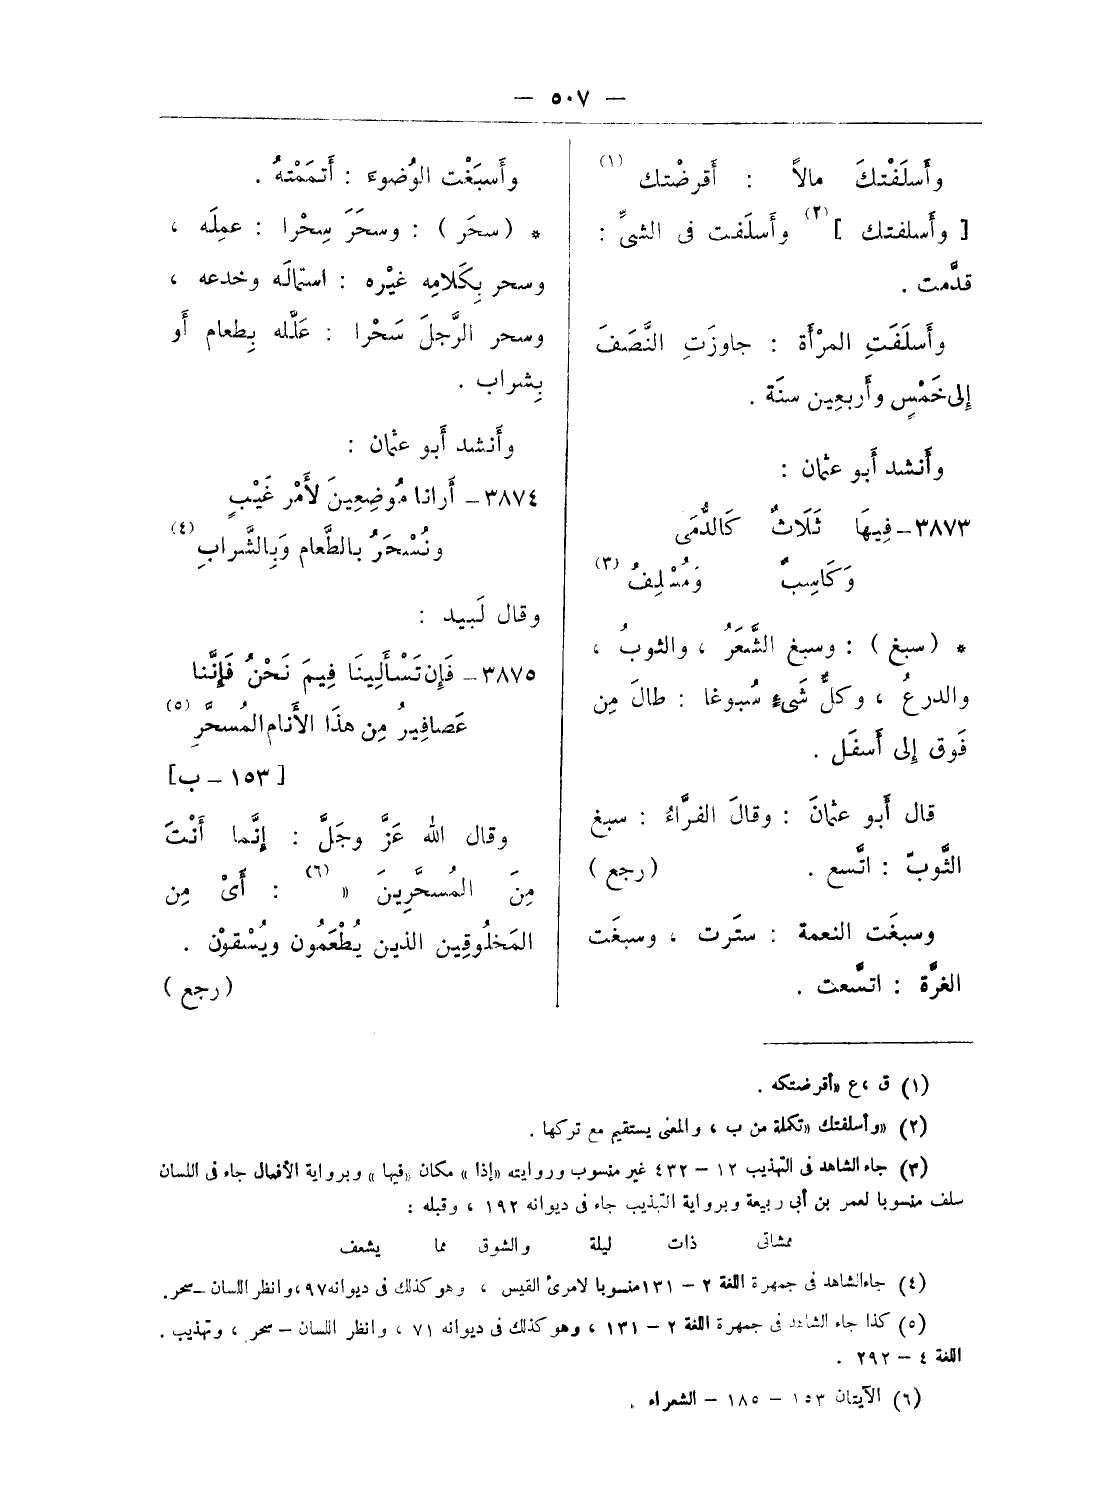 — ٥٠٧ —
وأَسلَفْتكَ مالاً : أَقرضْتك (١)
[ وأَسلفتك ] (٢) وأَسلَفت فى الشىِّ :
قدَّمت .
وأَسلَفَتِ المرْأَة : جاوزَتِ النَّصَفَ
إِلى خَمْسٍ وأَربعِين سنَة .
وأَنشد أَبو عثمان :
٣٨٧٣– فِيهَا ثَلَاثٌ كَالدُّمَى
وَكَاسِبٌ وَمُسْلِفُ (٣)
* (سبغ) : وسبغ الشَّعَرُ ، والثوبُ ،
والدرعُ ، وكلُّ شَىءٍ سُبوغا : طالَ مِن
فَوق إِلى أَسفَل .
قال أَبو عثمانَ : وقالَ الفرَّاءُ : سبغ
الثَّوبّ : اتَّسع . (رجع)
وسبغَت النعمة : ستَرت ، وسبغَت
الغرَّة : اتسَّعت .
وأَسبَغْت الوُضوءَ : أَتمَمْتهُ .
* (سحَر) : وسحَرَ سِحْرا : عمِلَه ،
وسحر بِكَلامِه غيْره : استمالَه وخدعه ،
وسحر الرَّجلَ سَحْرا : عَلَّله بِطعام أَو
بِشراب .
وأَنشد أَبو عثمان :
٣٨٧٤– أَرانا مُوضِعِينَ لأَمْر غَيْبٍ
ونُسْحَرُ بالطَّعام وَبِالشَّرابِ (٤)
وقال لَبيد :
٣٨٧٥– فَإِن تَسْأَلِينَا فِيمَ نَحْنُ فَإِنَّنا
عَصافِيرُ مِن هذَا الأَنام المُسحَّرِ (٥)
[١٥٣ – ب]
وقال الله عَزَّ وجَلَّ : إِنَّما أَنْتَ
مِنَ المُسحَّرِينَ » (٦) : أَىْ مِن
المَخلُوقِين الذين يُطْعَمُون ويُسْقوْن .
(رجع)
(١) ق ، ع «أقرضتكه .
(٢) «وأسلفتك «تكملة من ب ، والمعنى يستقيم مع تركها .
(٣) جاء الشاهد فى التهذيب ١٢ – ٤٣٢ غير منسوب وروايته «إذا » مكان «فيها » وبرواية الأفعال جاء فى اللسان
سلف منسوبا لعمر بن أبى ربيعة وبرواية التهذيب جاء فى ديوانه ١٩٢ ، وقبله :
مشاتى ذات ليلة والشوق مما يشعف
(٤) جاءالشاهد فى جمهرة اللغة ٢ – ١٣١منسوبا لامرئ القيس ، وهو كذلك فى ديوانه٩٧،وانظر اللسان –سحر.
(٥) كذا جاء الشاهد فى جمهرة اللغة ٢ – ١٣١ ، وهو كذلك فى ديوانه ٧١ ، وانظر اللسان – سحر ، وتهذيب .
اللغة ٤ – ٢٩٢ .
(٦) الآيتان ١٥٣ – ١٨٥ – الشعراء .